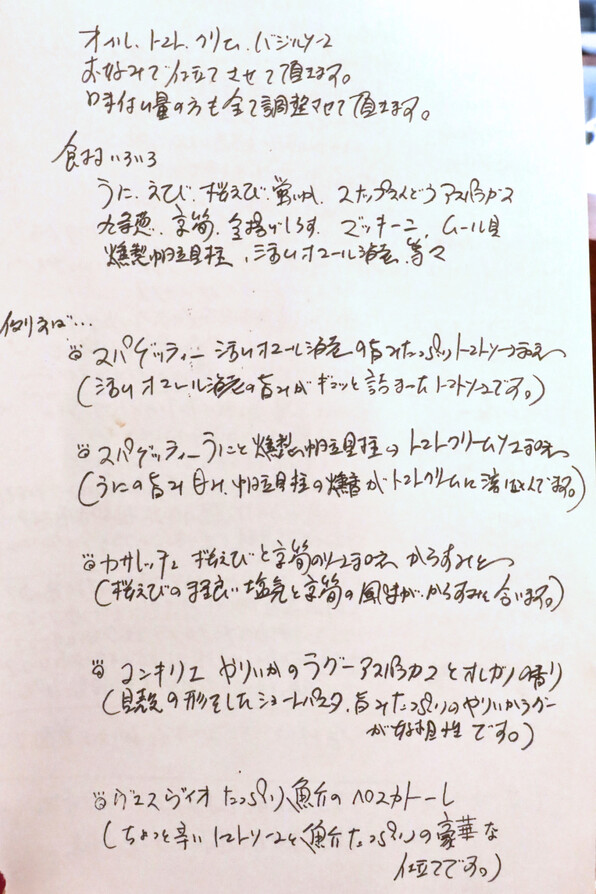 オイル、トマト、クリーム、バジルソース
お好みで仕立てさせて頂きます。
味付け量の方も全て調整させて頂きます。
食材いろいろ
うに、えび、桜えび、蛍いか、スナップえんどう、アスパラガス
九条葱、京筍、釜揚げしらす、ズッキーニ、ムール貝
燻製帆立貝柱、活〆オマール海老、等々
例えば…
スパゲッティー 活〆オマール海老の旨みたっぷりトマトソース和え
(活〆オマール海老の旨みがギュッと詰まったトマトソースです。)
スパゲッティーうにと燻製帆立貝柱のトマトクリームソース和え
(うにの旨み甘み、帆立貝柱の燻香がトマトクリームに溶け込んでます。)
カサレッチェ 桜えびと京筍のソース和え からすみと
(桜えびの程良い塩気と京筍の風味が、からすみと合います。)
コンキリエ やりいかのラグー アスパラガスとオレガノの香り
(貝殻の形をしたショートパスタ、旨みたっぷりのやりいかラグー
が好相性です。)
ヴェスヴィオ たっぷり魚介のペスカトーレ
(ちょっと辛いトマトソースと魚介たっぷりの豪華な
仕立てです。)